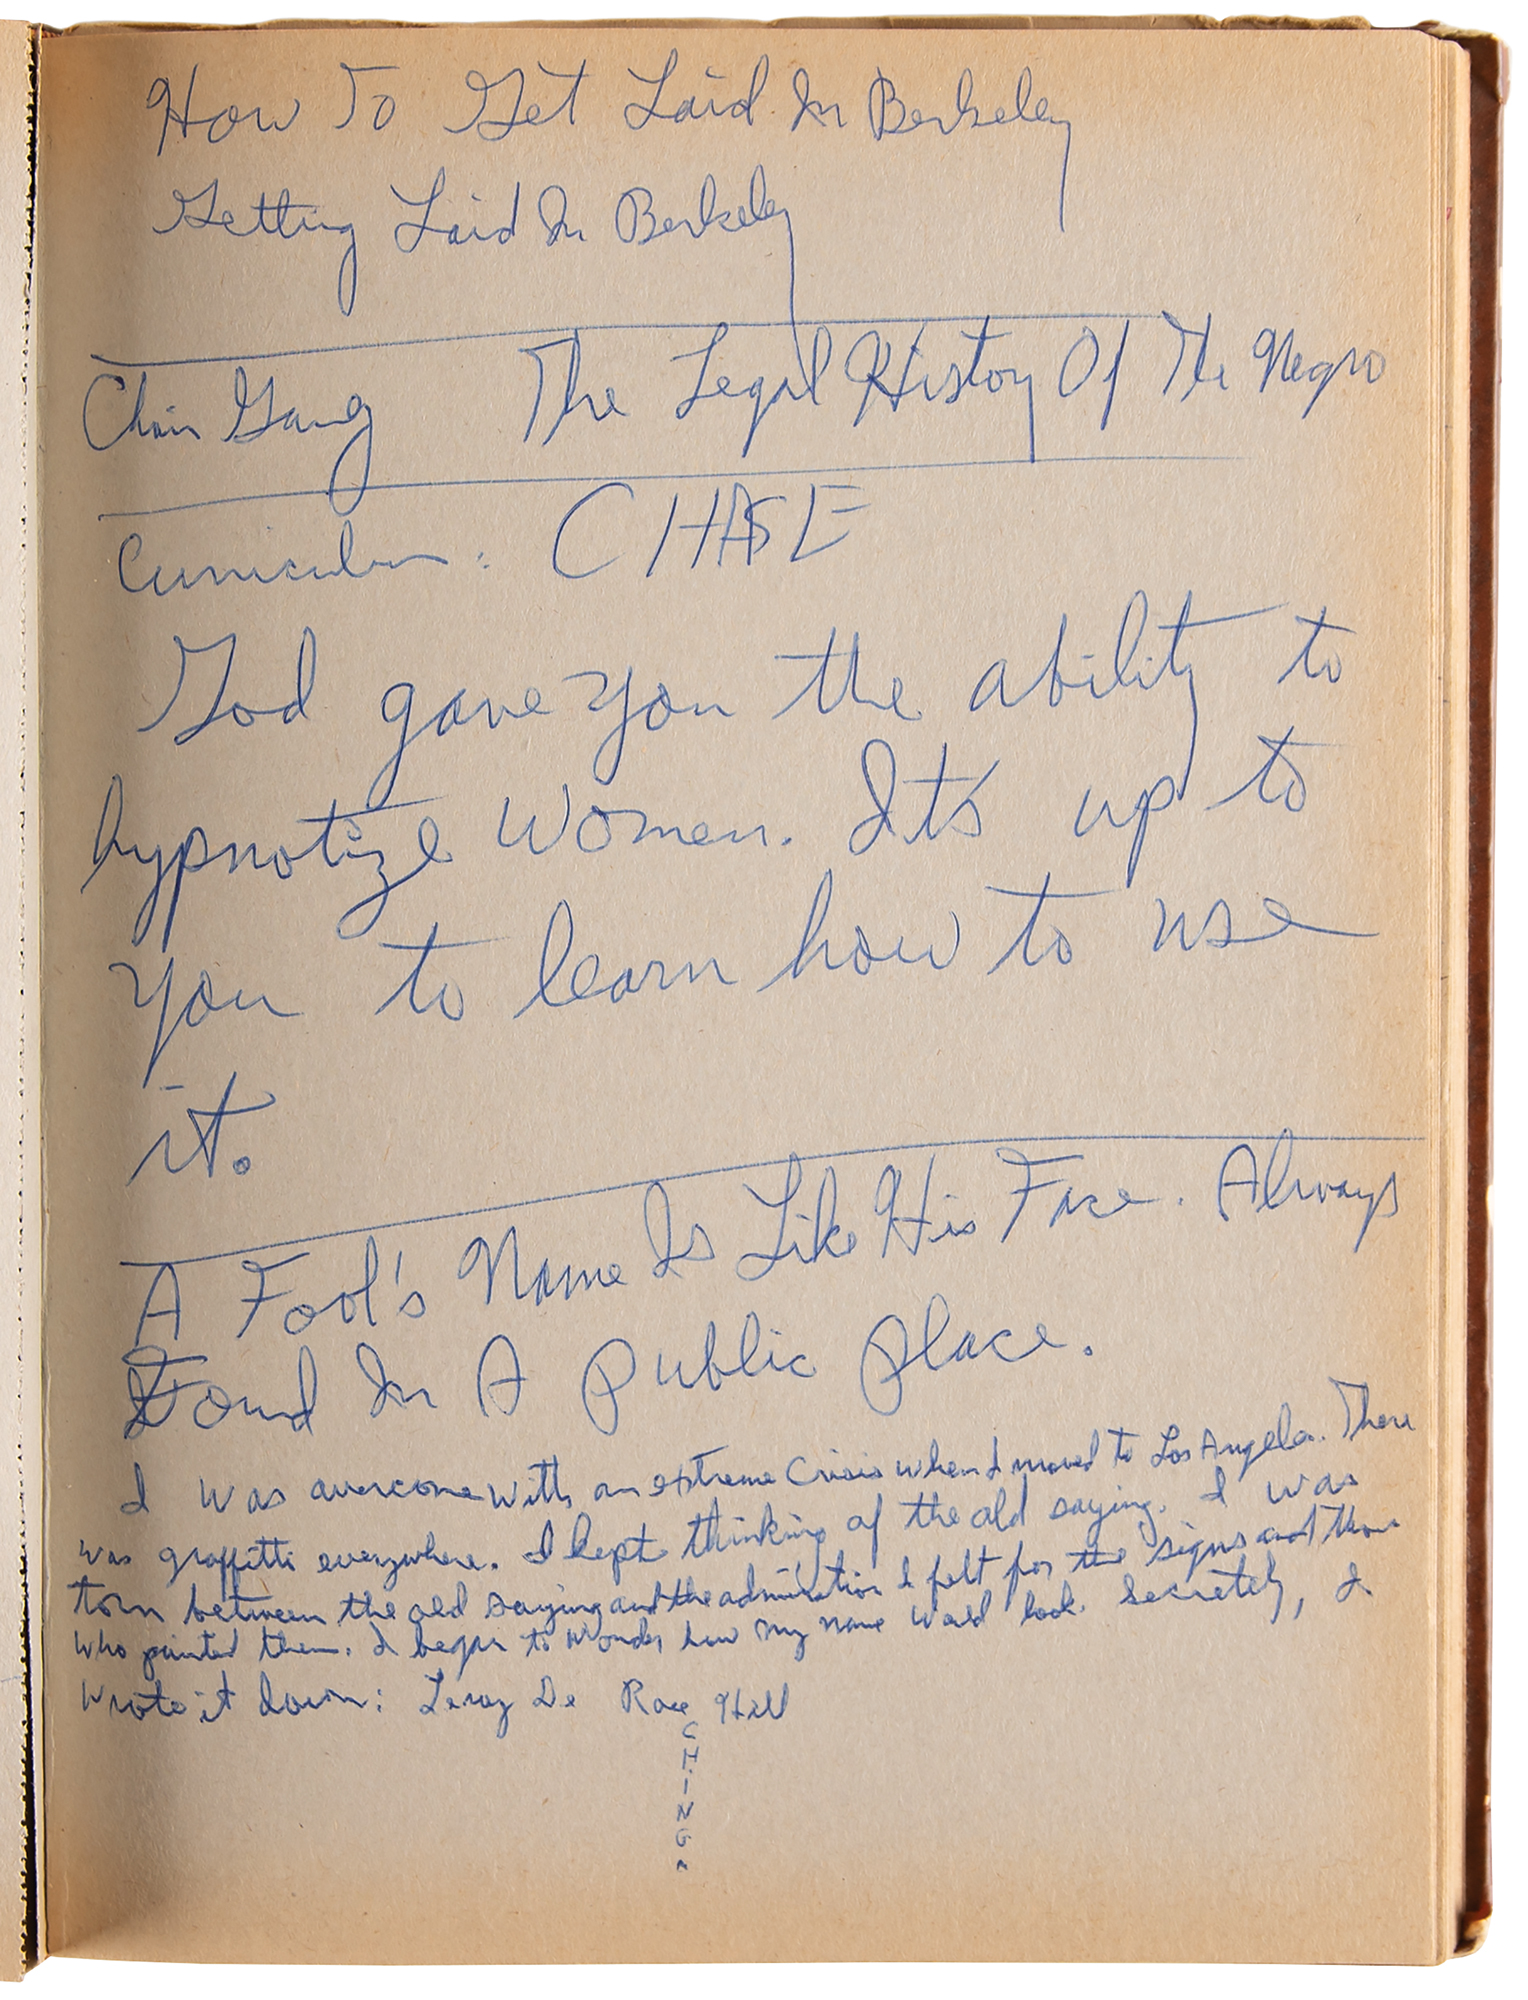 How To Get Laid In Berkeley
Getting Laid In Berkeley
Chain Gang The Legal History Of The Negro
Curriculum: CHASE
God gave you the ability to
hypnotize women. It's up to
you to learn how to use
it.
A Fool's Name Is Like His Face. Always
Found In A Public Place.
I was overcome with an extreme crisis when I moved to Los Angeles. There
was graffitti everywhere. I kept thinking of the old saying. I was
torn between the old saying and the admiration I felt for the signs and those
who painted them. I began to wonder how my name would look. Secretely, I
wrote it down: Leroy De Hill
CHING